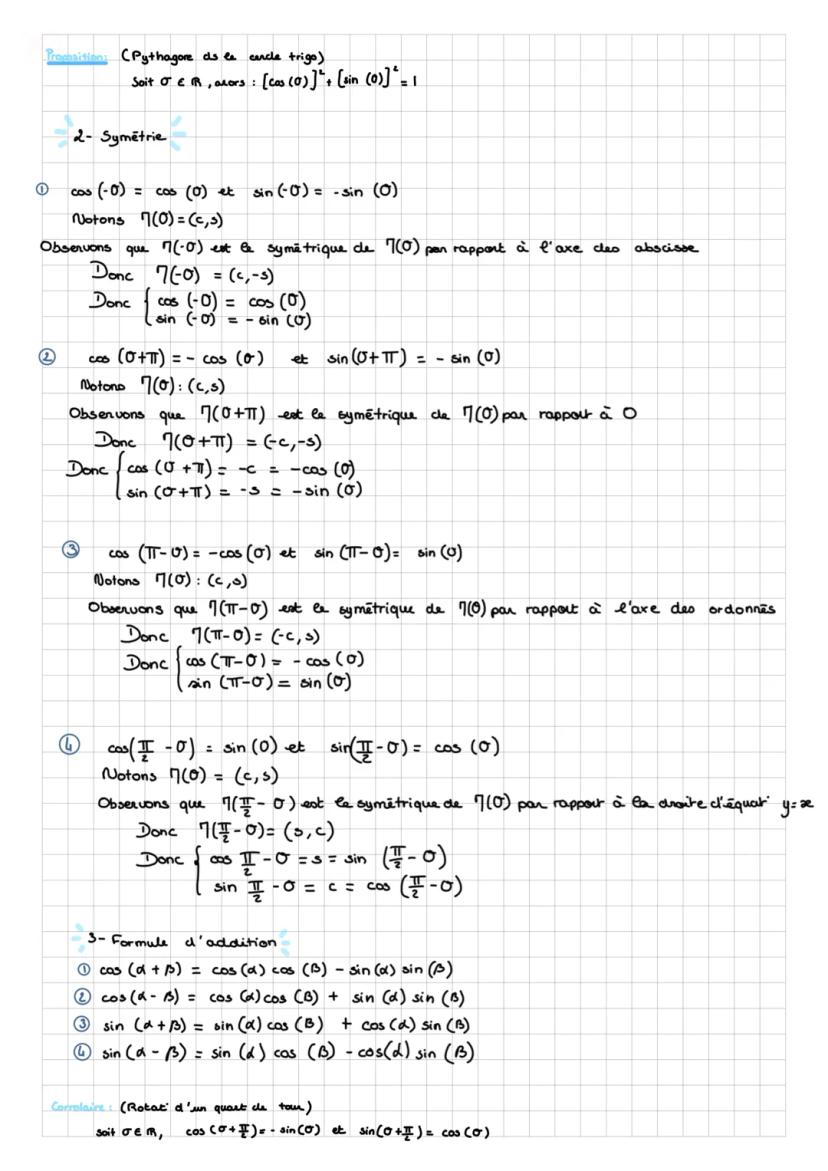 Proposition: (Pythagore ds le cercle trigo)
Soit σ ∈ ℝ, alors : [cos (σ)]² + [sin (σ)]² = 1
2- Symétrie
① cos (-σ) = cos (σ) et sin (-σ) = -sin (σ)
Notons M(σ) = (c,s)
Observons que M(-σ) est le symétrique de M(σ) par rapport à l'axe des abscisse
Donc M(-σ) = (c,-s)
Donc { cos (-σ) = cos (σ)
sin (-σ) = - sin (σ)
② cos (σ+π) = - cos (σ) et sin (σ+π) = - sin (σ)
Notons M(σ) : (c,s)
Observons que M(σ+π) est le symétrique de M(σ) par rapport à O
Donc M(σ+π) = (-c,-s)
Donc { cos (σ+π) = -c = -cos (σ)
sin (σ+π) = -s = -sin (σ)
③ cos (π-σ) = -cos (σ) et sin (π-σ) = sin (σ)
Notons M(σ) : (c,s)
Observons que M(π-σ) est le symétrique de M(σ) par rapport à l'axe des ordonnés
Donc M(π-σ) = (-c,s)
Donc { cos (π-σ) = - cos (σ)
sin (π-σ) = sin (σ)
④ cos(π/2 - σ) = sin (σ) et sin(π/2 - σ) = cos (σ)
Notons M(σ) = (c,s)
Observons que M(π/2 - σ) est le symétrique de M(σ) par rapport à la droite d'équat° y=x
Donc M(π/2 - σ) = (s,c)
Donc { cos π/2 - σ = s = sin (π/2 - σ)
sin π/2 - σ = c = cos (π/2 - σ)
3- Formule d'addition
① cos (α + β) = cos (α) cos (β) - sin (α) sin (β)
② cos (α - β) = cos (α) cos (β) + sin (α) sin (β)
③ sin (α + β) = sin (α) cos (β) + cos (α) sin (β)
④ sin (α - β) = sin (α) cos (β) - cos(α) sin (β)
Corrolaire : (Rotat° d'un quart de tour)
soit σ ∈ ℝ, cos (σ+π/2) = - sin (σ) et sin (σ+π/2) = cos (σ)